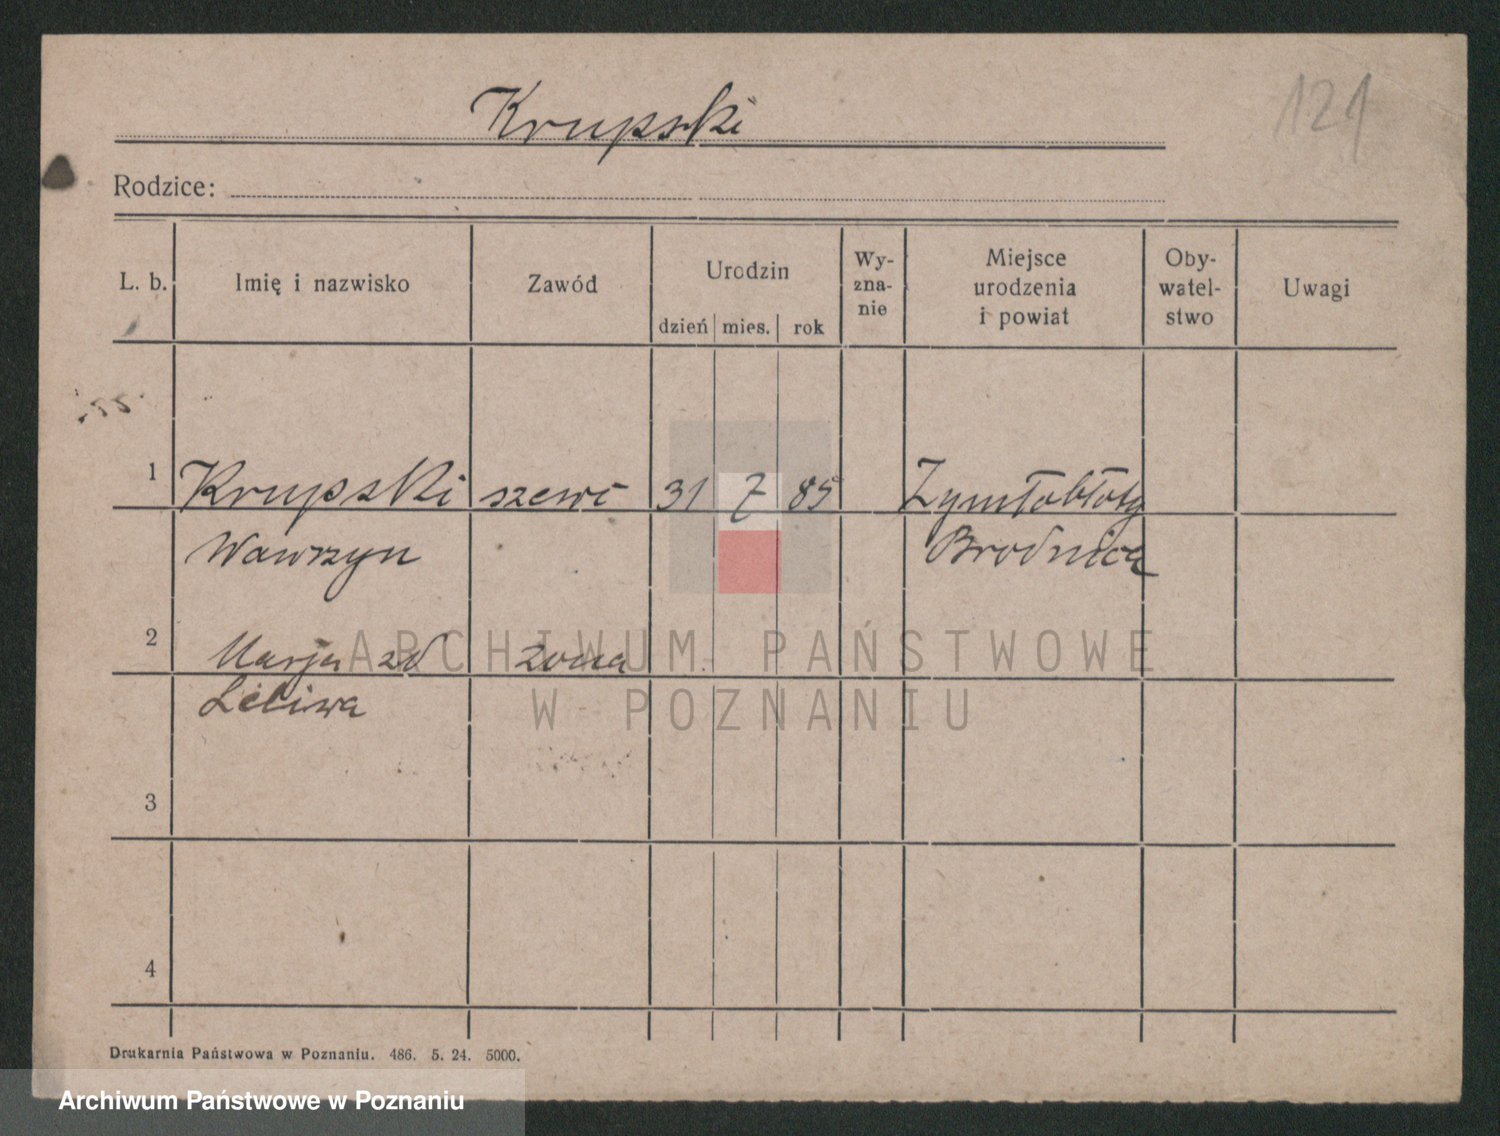 Krupski
121
Rodzice:
L. b. Imię i nazwisko Zawód Urodzin dzień mies. rok Wy-znanie Miejsce urodzenia i powiat Oby-watel-stwo Uwagi
1 Krupski szewc 31 7 85
Wawrzyn Brodnica
2 Marja zd żona
3
4
Drukarnia Państwowa w Poznaniu. 486. 5. 24. 5000.
ARCHIWUM PAŃSTWOWE
W POZNANIU
Archiwum Państwowe w Poznaniu